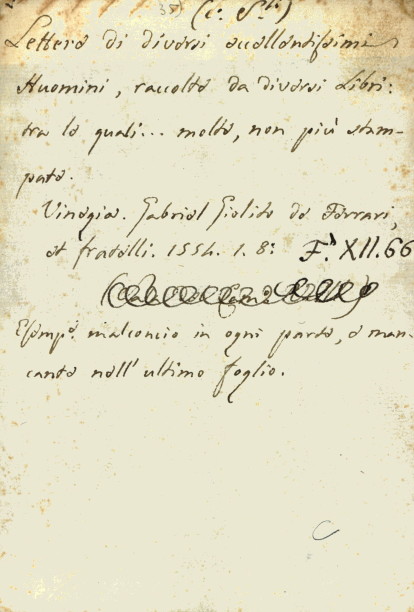 Lettere di diversi eccellentissimi
Huomini, raccolte da diversi Libri:
tra le quali... molte, non più stam-
pate.
Vinegia. Gabriel Giolito de Ferrari,
et fratelli. 1554. 1. 8: F. XII.66
Esemp. malconcio in ogni parte, e man-
cante nell' ultimo foglio.